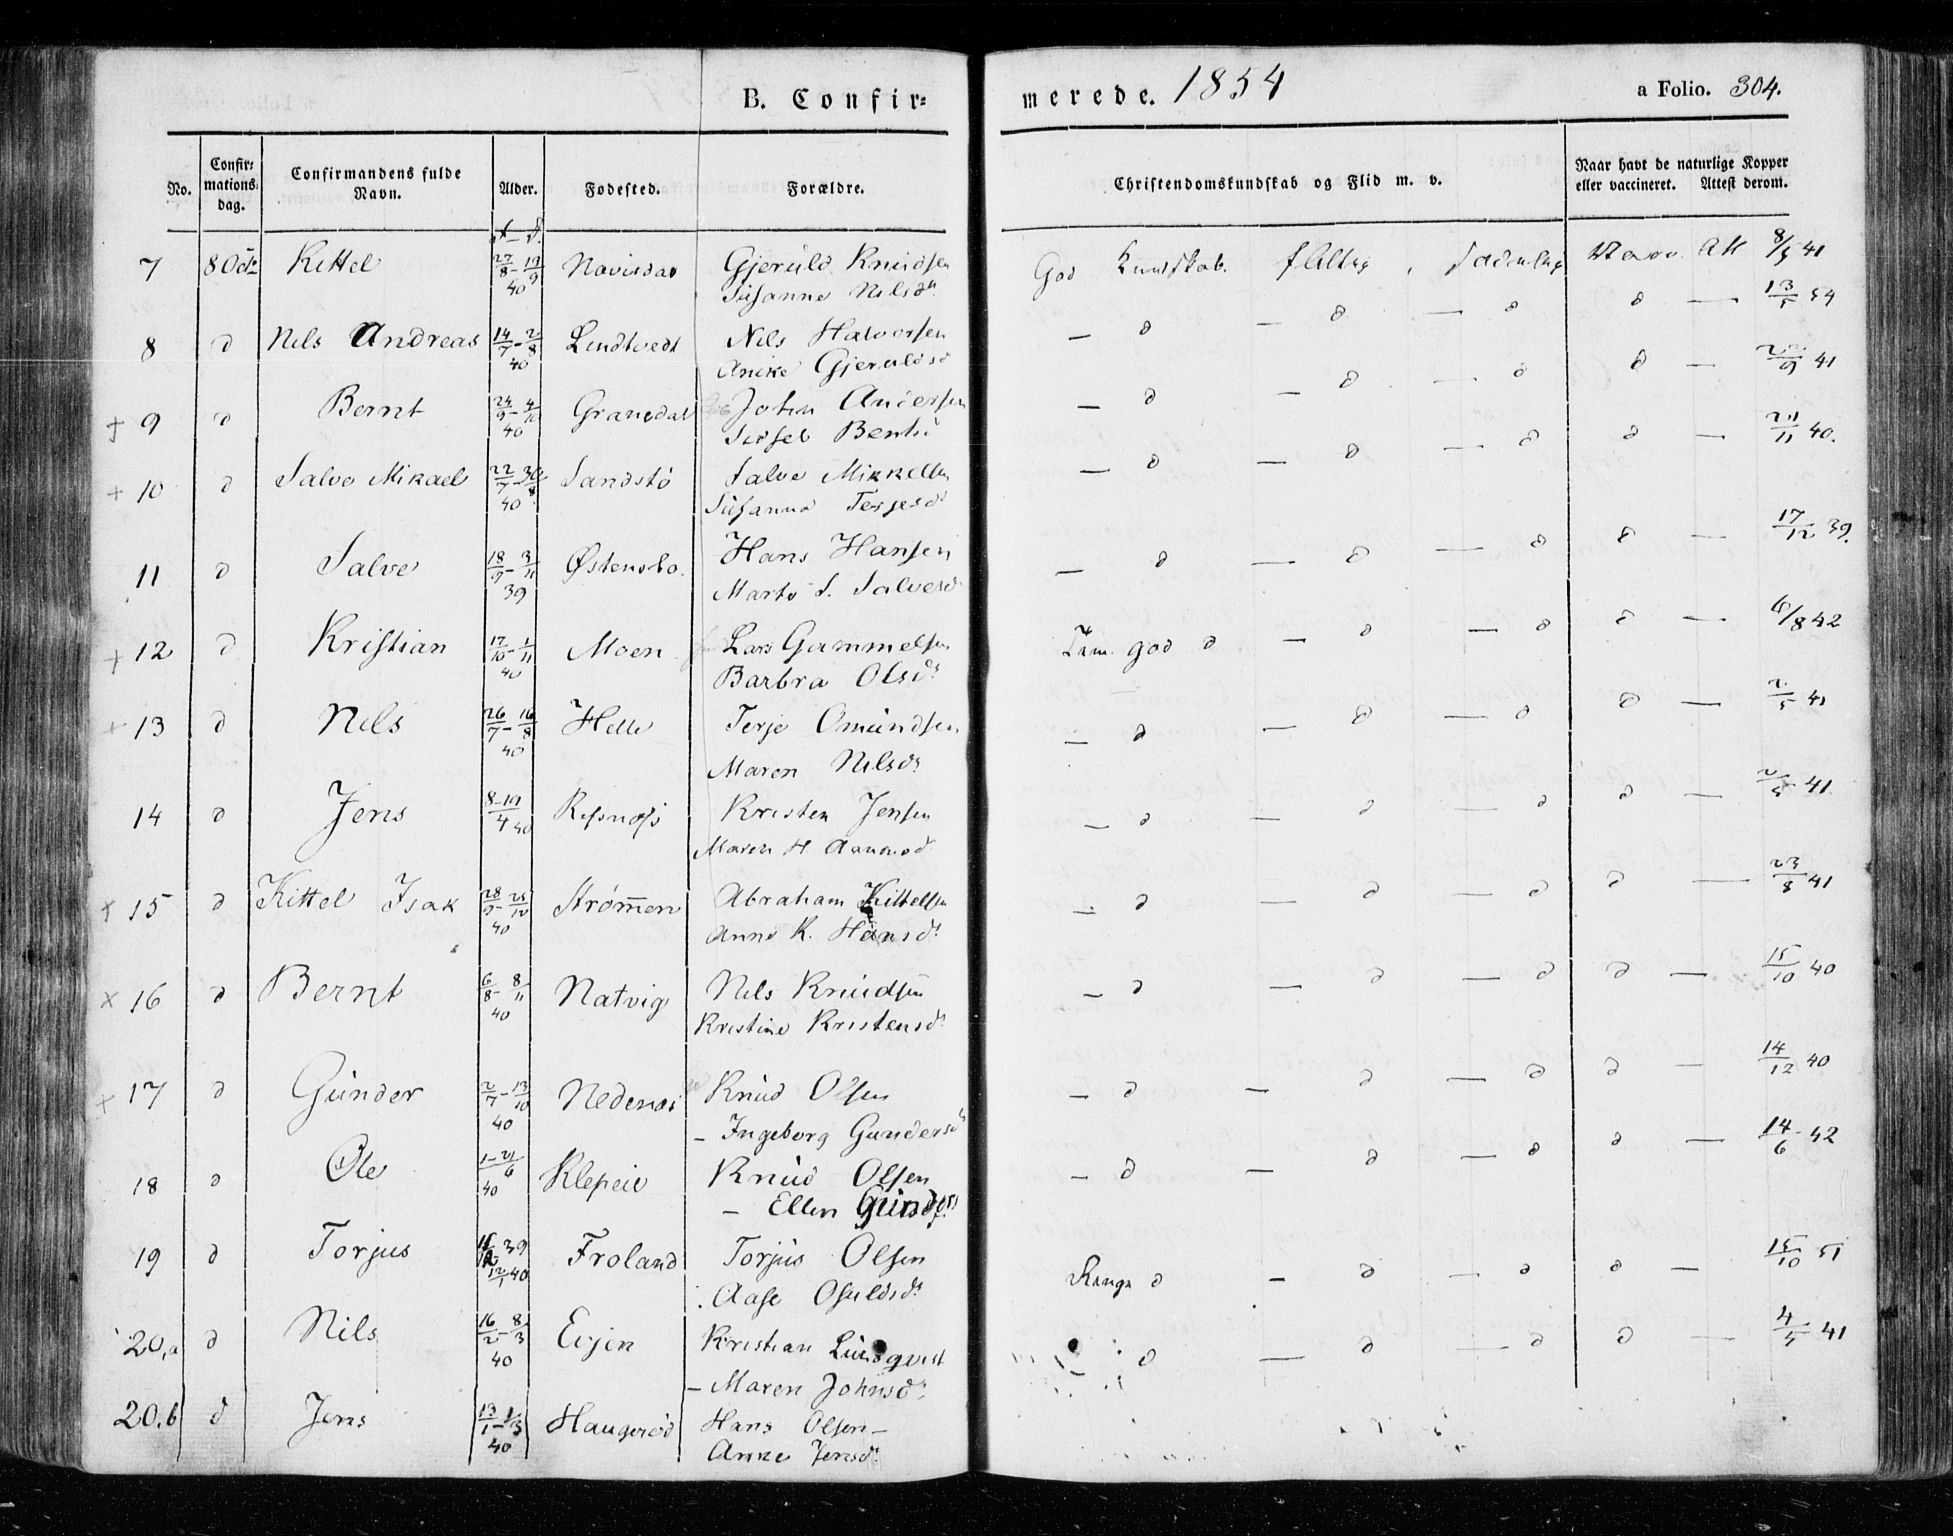 B. Confir=
merede. 1854
a Folio. 304.
No.
Confir=
mations=
dag.
Confirmandens fulde
Navn.
Alder.
Fødested.
Forældre.
Christendomskundskab og Flid m. v.
Naar havt de naturlige Kopper
eller vaccineret. Attest derom.
7 8 Kittel 27/8 - 13/9 40 Gjeruld Knudsen God Kundskab. flittig, sædelig Att 8/5 41
Susanne Nilsd.
8 d Nils Andreas 14/7 - 2/8 40 Lindtvedt Nils Halvorsen — d — d — d d — 13/5 54
Anike Gjeruldsd
+ 9 d Bernt 24/9 - 4/10 40 Johen Andersen — d — d — d d — 22/9 41
Sissel
+ 10 d Salve Mikael 22/7 - 30/8 40 Sandstø Salve Mikkelsen — d — d — d d — 21/11 40.
Susanna Tergesd
11 d Salve 18/9 - 3/11 39 Østensbo. Hans Hansen — d — d — d d — 17/12 39.
S. Salvesd
+ 12 d Kristian 17/10 - 1/11 40 Moen Lars Gammelsen Tem. god d — d — d d — 6/8 42
Barbra Olsd.
+ 13 d Nils 26/7 - 16/8 40 Helle Terje Omundsen — d — d — d d — 2/5 41
Maren Nilsd.
14 d Jens 8-19/4 40 Kristen Jensen — d — d — d d — 2/5 41
Maren H Aanonsd
x 15 d Kittel Isak 28/9 - 25/10 40 Strømen Abraham Kittelsen — d — d — d d — 23/8 41
Anne K. Hansd.
x 16 d Bernt 6/8 - 8/11 40 Natvig Nils Knudsen — d — d — d d — 15/10 40
Kristine Kristensd.
x 17 d Gunder 2/7 - 13/10 40 Nedenæs Knud Olsen — d — d — d d — 14/12 40
— Ingeborg Gundersd.
18 d Ole 1-21/6 40 Knud Olsen — d — d — d d — 14/6 42
— Ellen
19 d Torjus 39 12/1 40 Froland Torjus Olsen d — d — d d — 15/10 51
Aase Osuldsd.
20,a d Nils 16/2 - 8/3 40 Evjen Kristian Lundqvist d — d — d d — 4/5 41
— Maren Johnsd.
20.b d Jens 13/1 - 1/3 40 Haugerød Hans Olsen —
Anne Jensd.